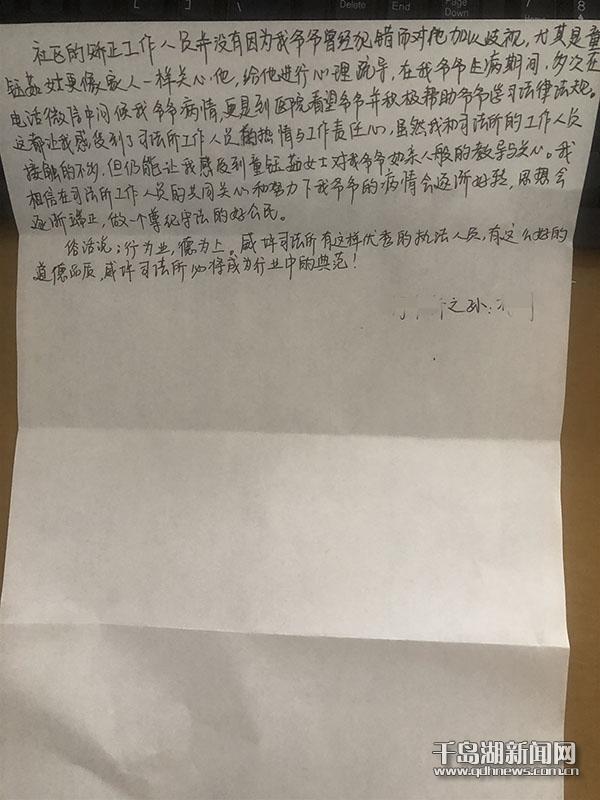 社区的矫正工作人员并没有因为我爷爷曾经犯错而对他加以歧视，尤其是童
钰茹女士更像家人一样关心他，给他进行心理疏导，在我爷爷生病期间，多次在
电话微信中问候我爷爷病情，更是到医院看望爷爷并积极帮助爷爷学习法律法规。
这都让我感受到了司法所工作人员的热情与工作责任心，虽然我和司法所的工作人员
接触的不多，但仍能让我感受到童钰茹女士对我爷爷如亲人般的教导与关心。我
相信在司法所工作人员的共同关心和努力下我爷爷的病情会逐渐好转，思想会
逐渐端正，做一个尊纪守法的好公民。
俗话说：行为业，德为上。威许司法所有这样优秀的执法人员，有这么好的
道德品质，威许司法所必将成为行业中的典范！
之孙：
千岛湖新闻网
www.qdhnews.com.cn